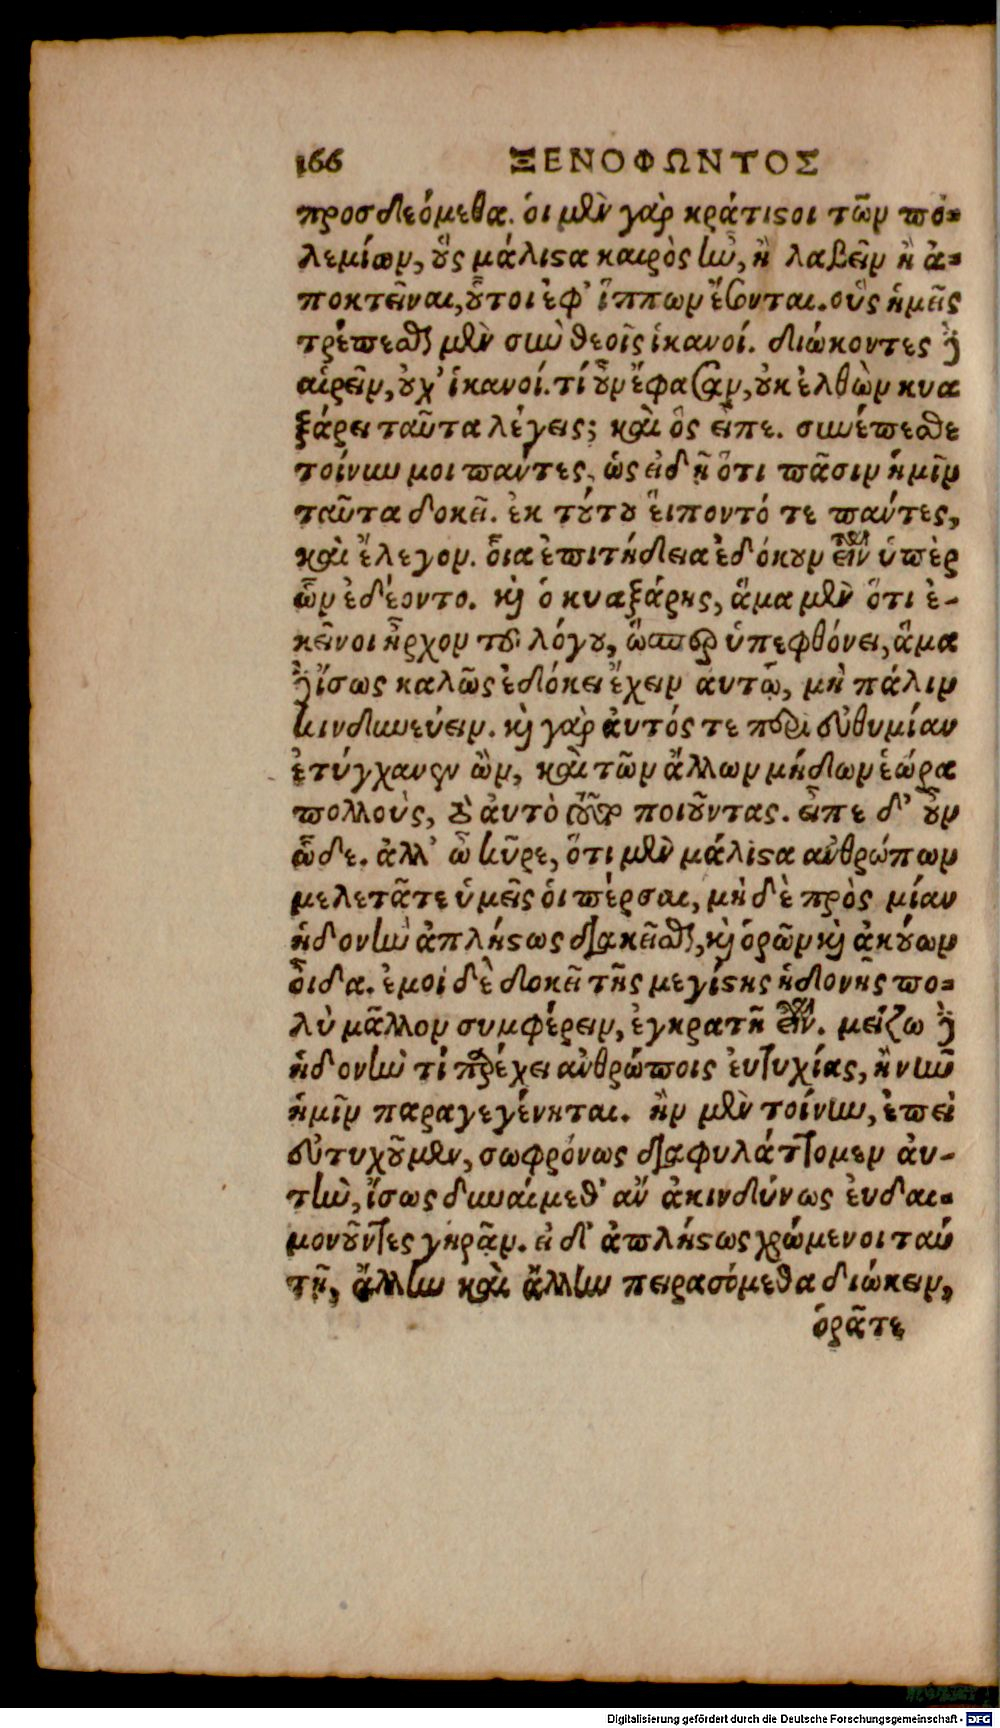 166 ΞΕΝΟΦΩΝΤΟΣ
προσδεόμεθα. ὁι μὲν γὰρ κράτιϛοι τῶν πο-
λεμίων, οὓς μάλιϛα καιρὸς ἦν, ἢ λαβεῖν ἢ ἀ-
ποκτεῖναι, οὗτοι ἐφ' ἵππων ἔσονται. οὓς ἡμεῖς
τρέπεσθαι μὲν σιωὺ θεοῖς ἱκανοί. διώκοντες δὲ
αἱρεῖν, οὐχ' ἱκανοί. τί οὖν ἔφασαν, οὐκ ἐλθὼν κυα
ξάρει ταῦτα λέγεις; καὶ ὃς εἶπε. συνέπεσθε
τοίνυν μοι πάντες, ὡς εἰδῇ ὅτι πᾶσιν ἡμῖν
ταῦτα δοκεῖ. ἐκ τούτου εἵποντό τε πάντες,
καὶ ἔλεγον. οἷα ἐπιτήδεια ἐδόκουν εἶναι ὑπὲρ
ὧν ἐδέοντο. καὶ ὁ κυαξάρης, ἅμα μὲν ὅτι ἐ-
κεῖνοι ἦρχον τοῦ λόγου, ὥσπερ ὑπεφθόνει, ἅμα
δὲ ἴσως καλῶς ἐδόκει ἔχειν αὐτῷ, μὴ πάλιν
κινδυνεύειν. καὶ γὰρ ἀυτός τε περὶ εὐθυμίαν
ἐτύγχανεν ὢν, καὶ τῶν ἄλλων μήδων ἑώρα
πολλοὺς, τὸ ἀυτὸ τοῦτο ποιοῦντας. εἶπε δ' οὖν
ὧδε. ἀλλ' ὦ κῦρε, ὅτι μὲν μάλιϛα ἀνθρώπων
μελετᾶτε ὑμεῖς ὁι πέρσαι, μηδὲ πρὸς μίαν
ἡδονὴν ἀπλήϛως διακεῖσθαι, καὶ ὁρῶν καὶ ἀκούων
οἶδα. ἐμοὶ δὲ δοκεῖ τῆς μεγίϛης ἡδονῆς πο-
λὺ μᾶλλον συμφέρειν, ἐγκρατῆ εἶναι. μείζω δὲ
ἡδονὴν τί παρέχει ἀνθρώποις ἐυτυχίας, ἣ νῦν
ἡμῖν παραγεγένηται. ἢν μὲν τοίνυν, ἐπεὶ
εὐτυχοῦμεν, σωφρόνως διαφυλάττομεν ἀυ-
τὴν, ἴσως δυναίμεθ' ἂν ἀκινδύνως ἐυδαι-
μονοῦντες γηρᾶν. εἰ δ' ἀπλήϛως χρώμενοι ταύ
τῃ, ἄλλην καὶ ἄλλην πειρασόμεθα διώκειν,
ὁρᾶτε
Digitalisierung gefördert durch die Deutsche Forschungsgemeinschaft - DFG